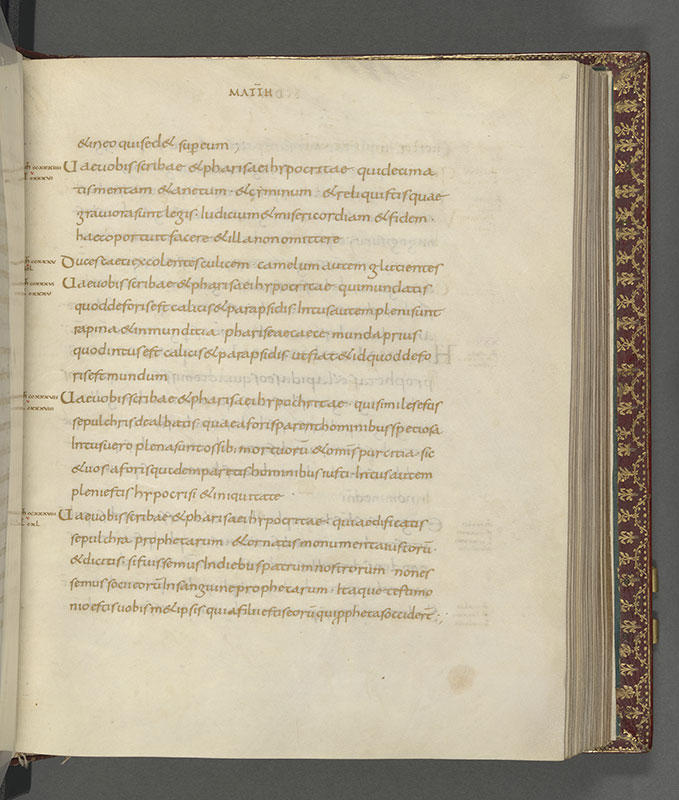 MATTH
& in eo qui sed& super eum
Uae uobis scribae & pharisaei hypocritae · qui decima
tis mentam & anetum · & cyminum & reliquistis quae
grauiora sunt legis · Iudicium & misericordiam & fidem ·
haec oportuit facere & illa non omittere
Duces caeci excolentes culicem camelum autem glutientes
Uae uobis scribae & pharisaei hypocritae qui mundatis
quod deforis est calicis & parapsidis · Intus autem pleni sunt
rapina & inmunditia pharisaee caece munda prius
quod intus est calicis & parapsidis ut fiat & id quod defo
ris est mundum
Uae uobis scribae & pharisaei hypochritae · qui similes estis
sepulchris dealbatis quae a foris parent hominibus speciosa
Intus uero plena sunt ossib; mortuorū & omni spurcitia · sic
& uos a foris quidem paretis hominibus iusti · Intus autem
pleni estis hypocrisi & iniquitate ·
Uae uobis scribae & pharisaei hypocritae · qui aedificatis
sepulchra prophetarum & ornatis monumenta iustorū ·
& dicitis · si fuissemus In diebus patrum nostrorum · non es
semus socii eorū In sanguine prophetarum · Itaque testimo
nio estis uobis m&ipsis quia filii estis eorū qui pphetas occiderī